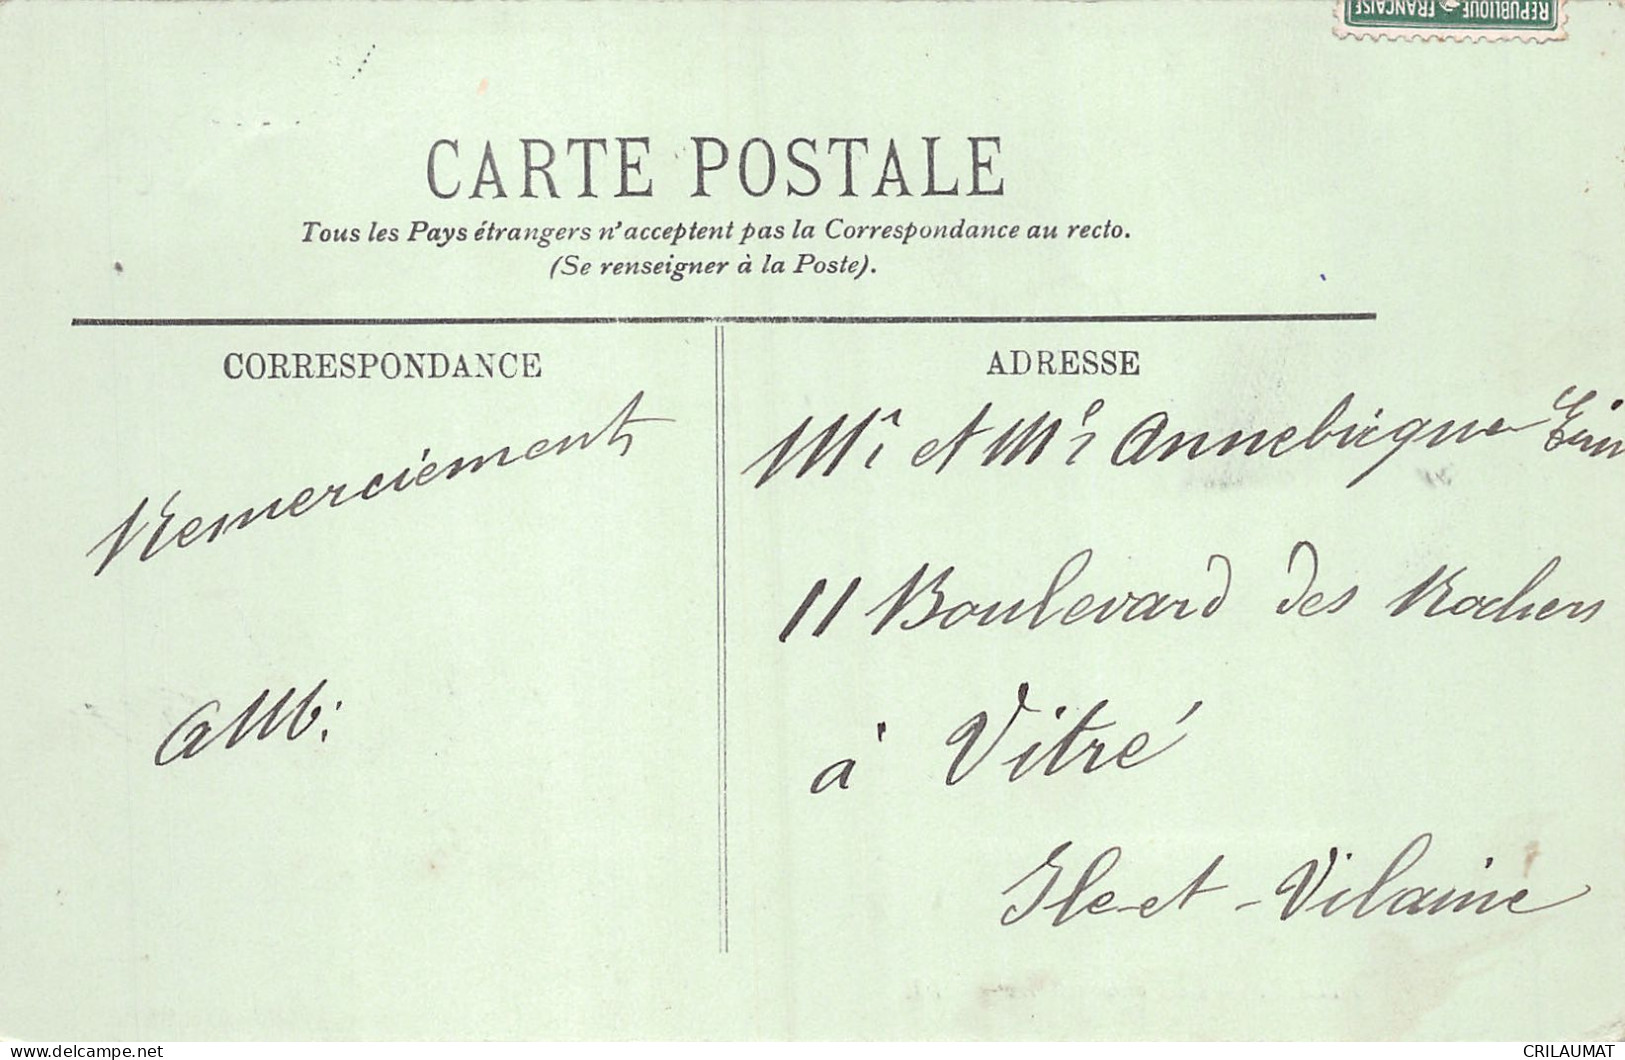 REPUBLIQUE FRANÇAISE
CARTE POSTALE
Tous les Pays étrangers n'acceptent pas la Correspondance au recto.
(Se renseigner à la Poste).
CORRESPONDANCE
Remerciements
AMb:
ADRESSE
Mr et Me Annebicque
11 Boulevard des Rochers
à Vitré
Ile-et-Vilaine
CRILAUMAT
https://www.delcampe.net